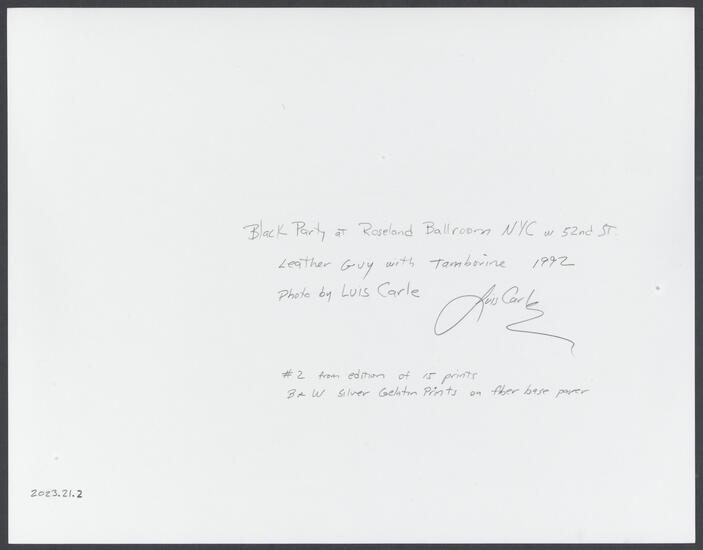 Black Party at Roseland Ballroom NYC w 52nd ST.
Leather Guy with Tamborine 1992
Photo by Luis Carle
Luis Carle
#2 from edition of 15 prints
B & W Silver Gelatin Prints on fiber base paper
2023.21.2